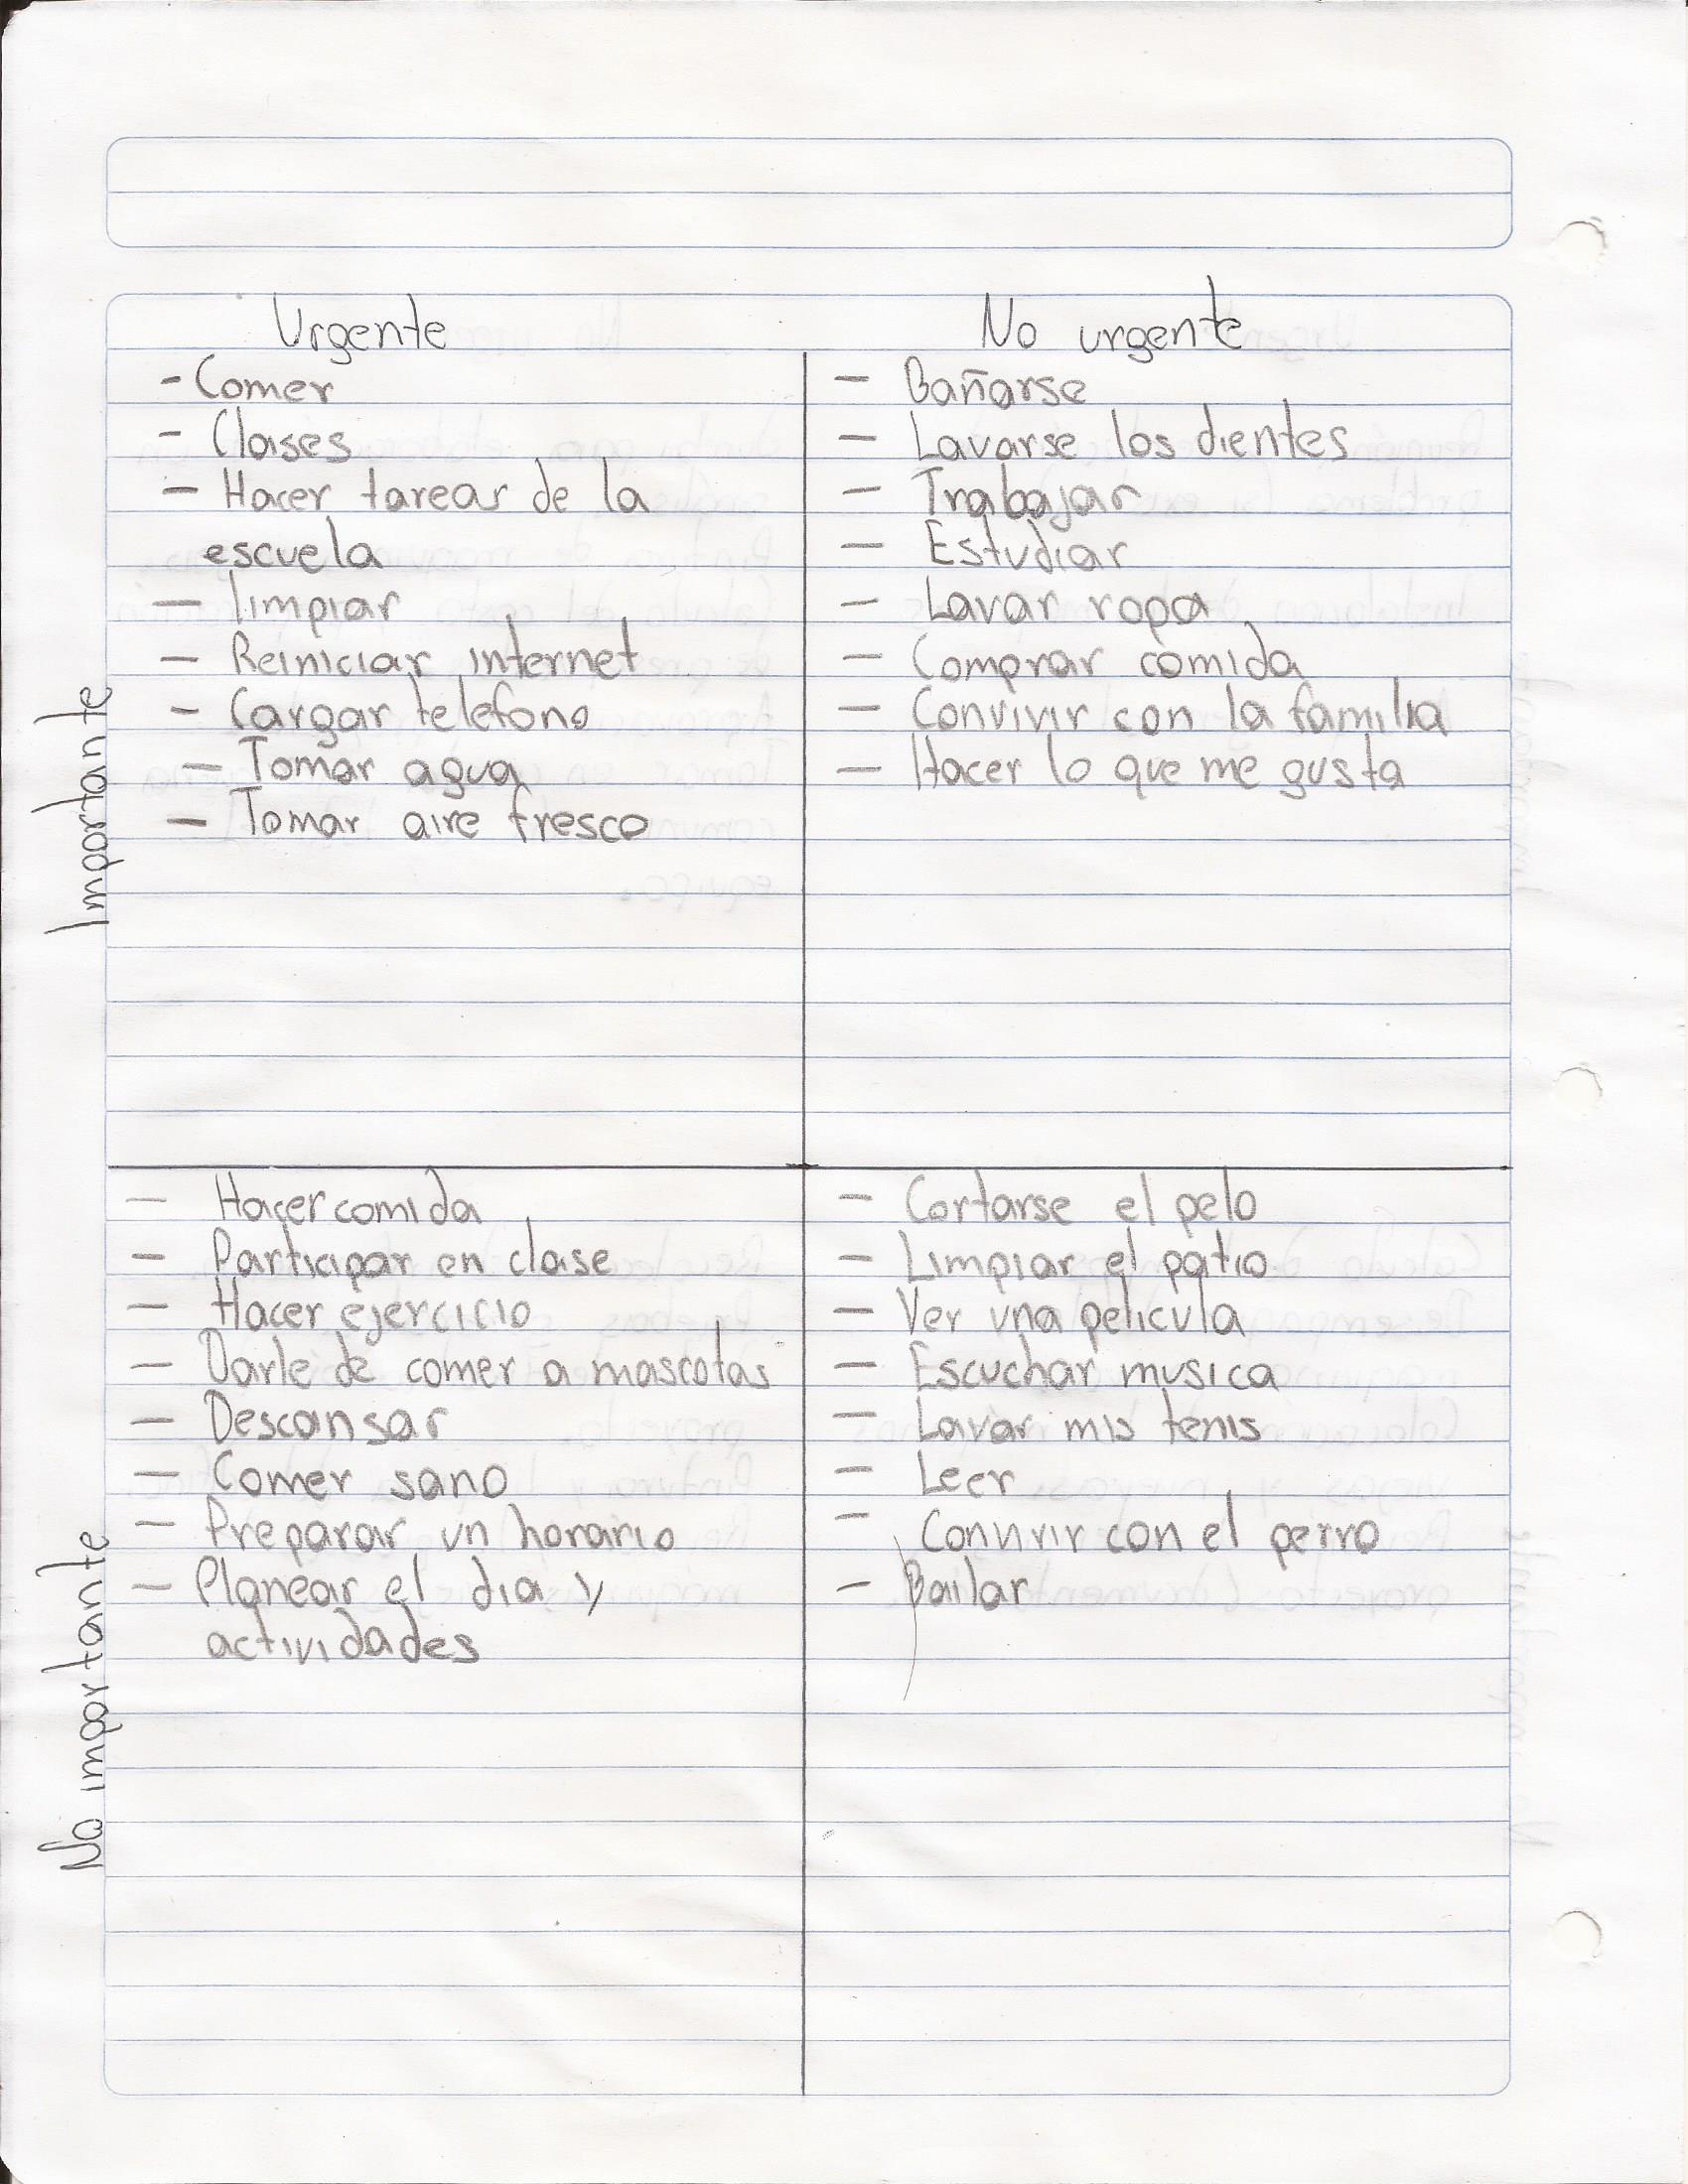 Urgente
No urgente
Importante
- Comer
- Clases
- Hacer tareas de la
escuela
- limpiar
- Reiniciar internet
- Cargar telefono
- Tomar agua
- Tomar aire fresco
- Bañarse
- Lavarse los dientes
- Trabajar
- Estudiar
- Lavar ropa
- Comprar comida
- Convivir con la familia
- Hacer lo que me gusta
No importante
- Hacer comida
- Participar en clase
- Hacer ejercicio
- Darle de comer a mascotas
- Descansar
- Comer sano
- Preparar un horario
- Planear el dia y
actividades
- Cortarse el pelo
- Limpiar el patio
- Ver una pelicula
- Escuchar musica
- Lavar mis tenis
- Leer
- Convivir con el perro
- Bailar